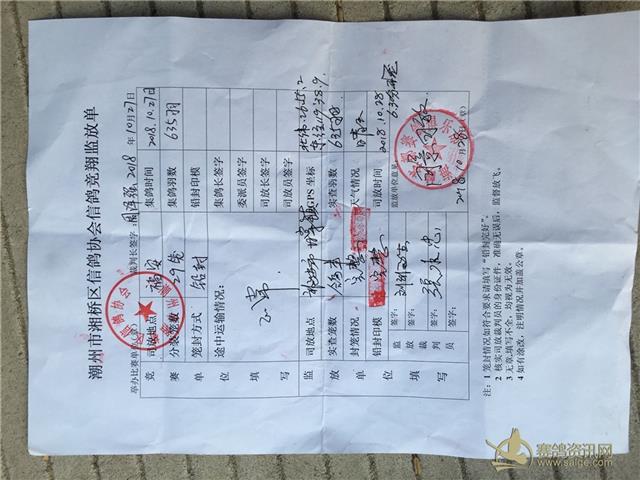 潮州市湘桥区信鸽协会信鸽竞翔监放单
举办比赛单位公章: 裁判长签字: 2018 年10月27日
竞赛单位填写
司放地点 集鸽时间 2018.10.27日
分装笼数 39笼 集鸽羽数 635羽
笼封方式 铅封 铅封印模
途中运输情况: 正常 集鸽长签字
委派员签字
司放长签字
司放员签字
监放单位填写
司放地点 GPS坐标 北纬
实查笼数 实查羽数 635羽
封笼情况 完整 天气情况 晴
铅封印模 完整 司放时间 2018.10.28
监放裁判员
签字:
签字:
签字:
监放单位意见 同意司放
2018.10.28 (章)
注: 1 笼封情况如符合要求请填写“铅封完好”。
2 核实司放裁判员的身份证件,准确无误后,监督放飞。
3 无章,填写不全,均视为无效。
4 如有涂改,注明情况并加盖公章。
赛鸽资讯网
www.saige.com